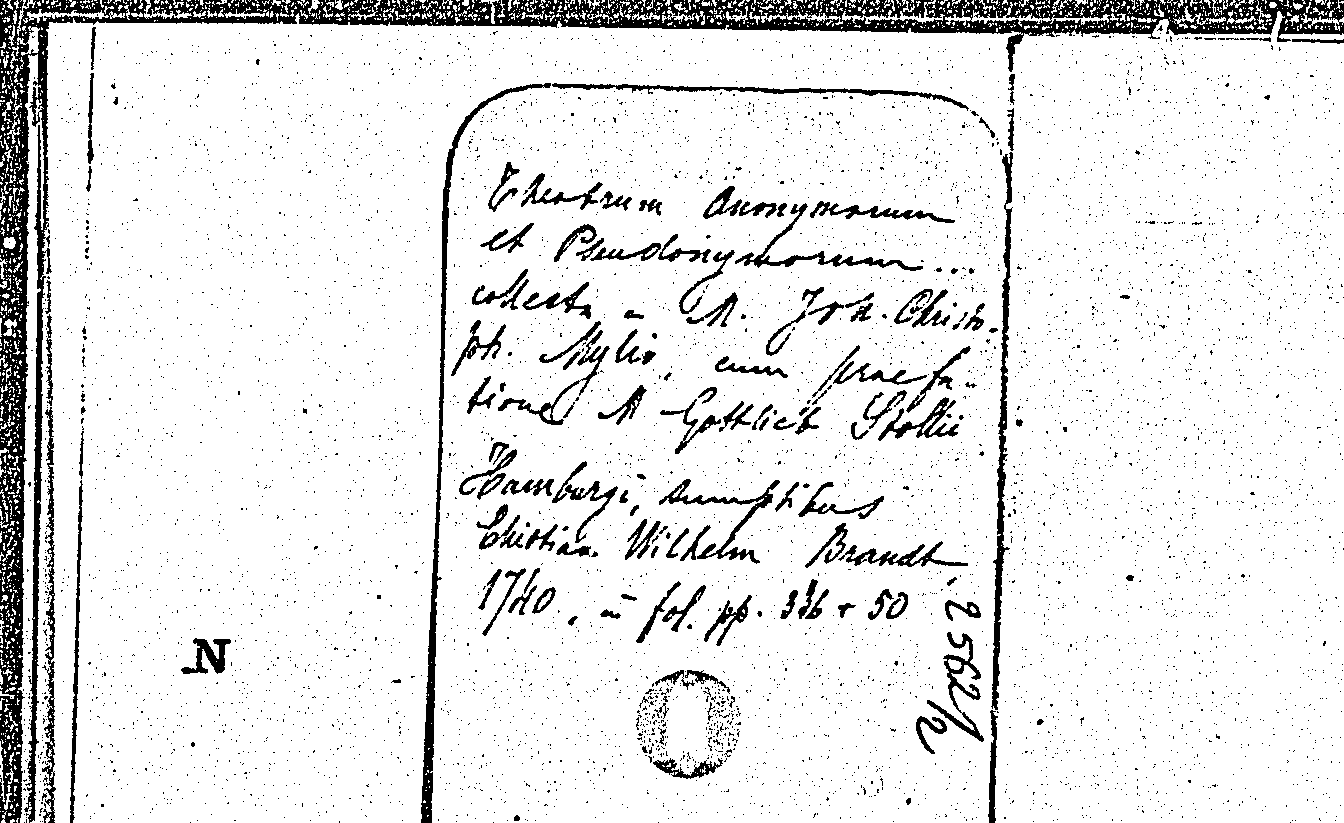 Theatrum Anonymorum
et Pseudonymorum...
collectu a M. Joh. Christo-
ph. Mylio, cum praefa-
tione M Gottlieb Stollii
Hamburgi, sumptibus
Christian. Wilhelm Brandt,
1740, in fol. pp. 336 + 50
2562/2
N